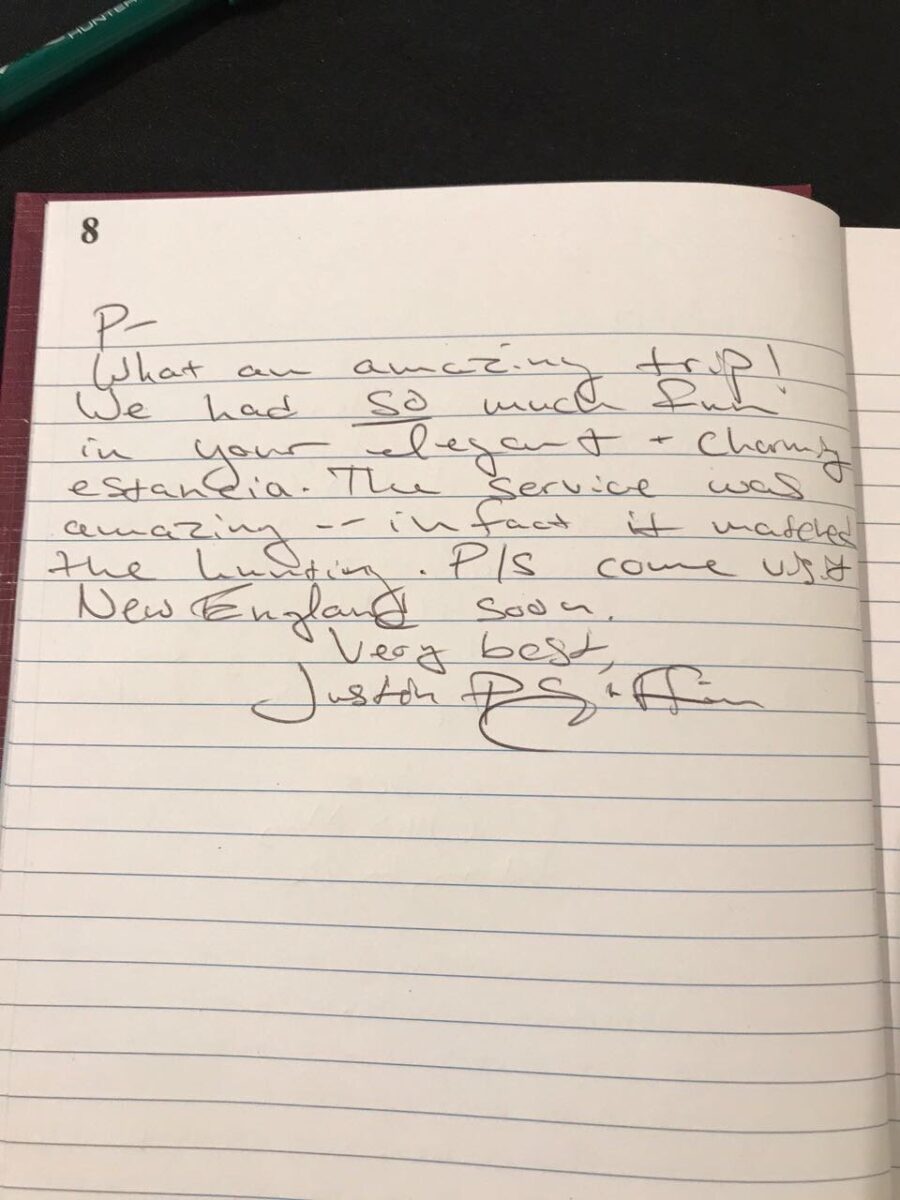 HUNTER
8
P-
What an amazing trip!
We had SO much fun
in your elegant + charming
estancia. The service was
amazing -- in fact it matched
the hunting. Pls come visit
New England soon.
Very best,
Justin